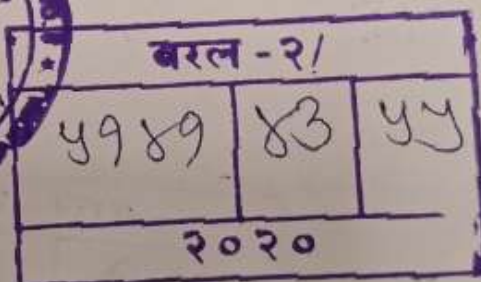 बरल - २/
५१४१ ४३ ५५
२०२०